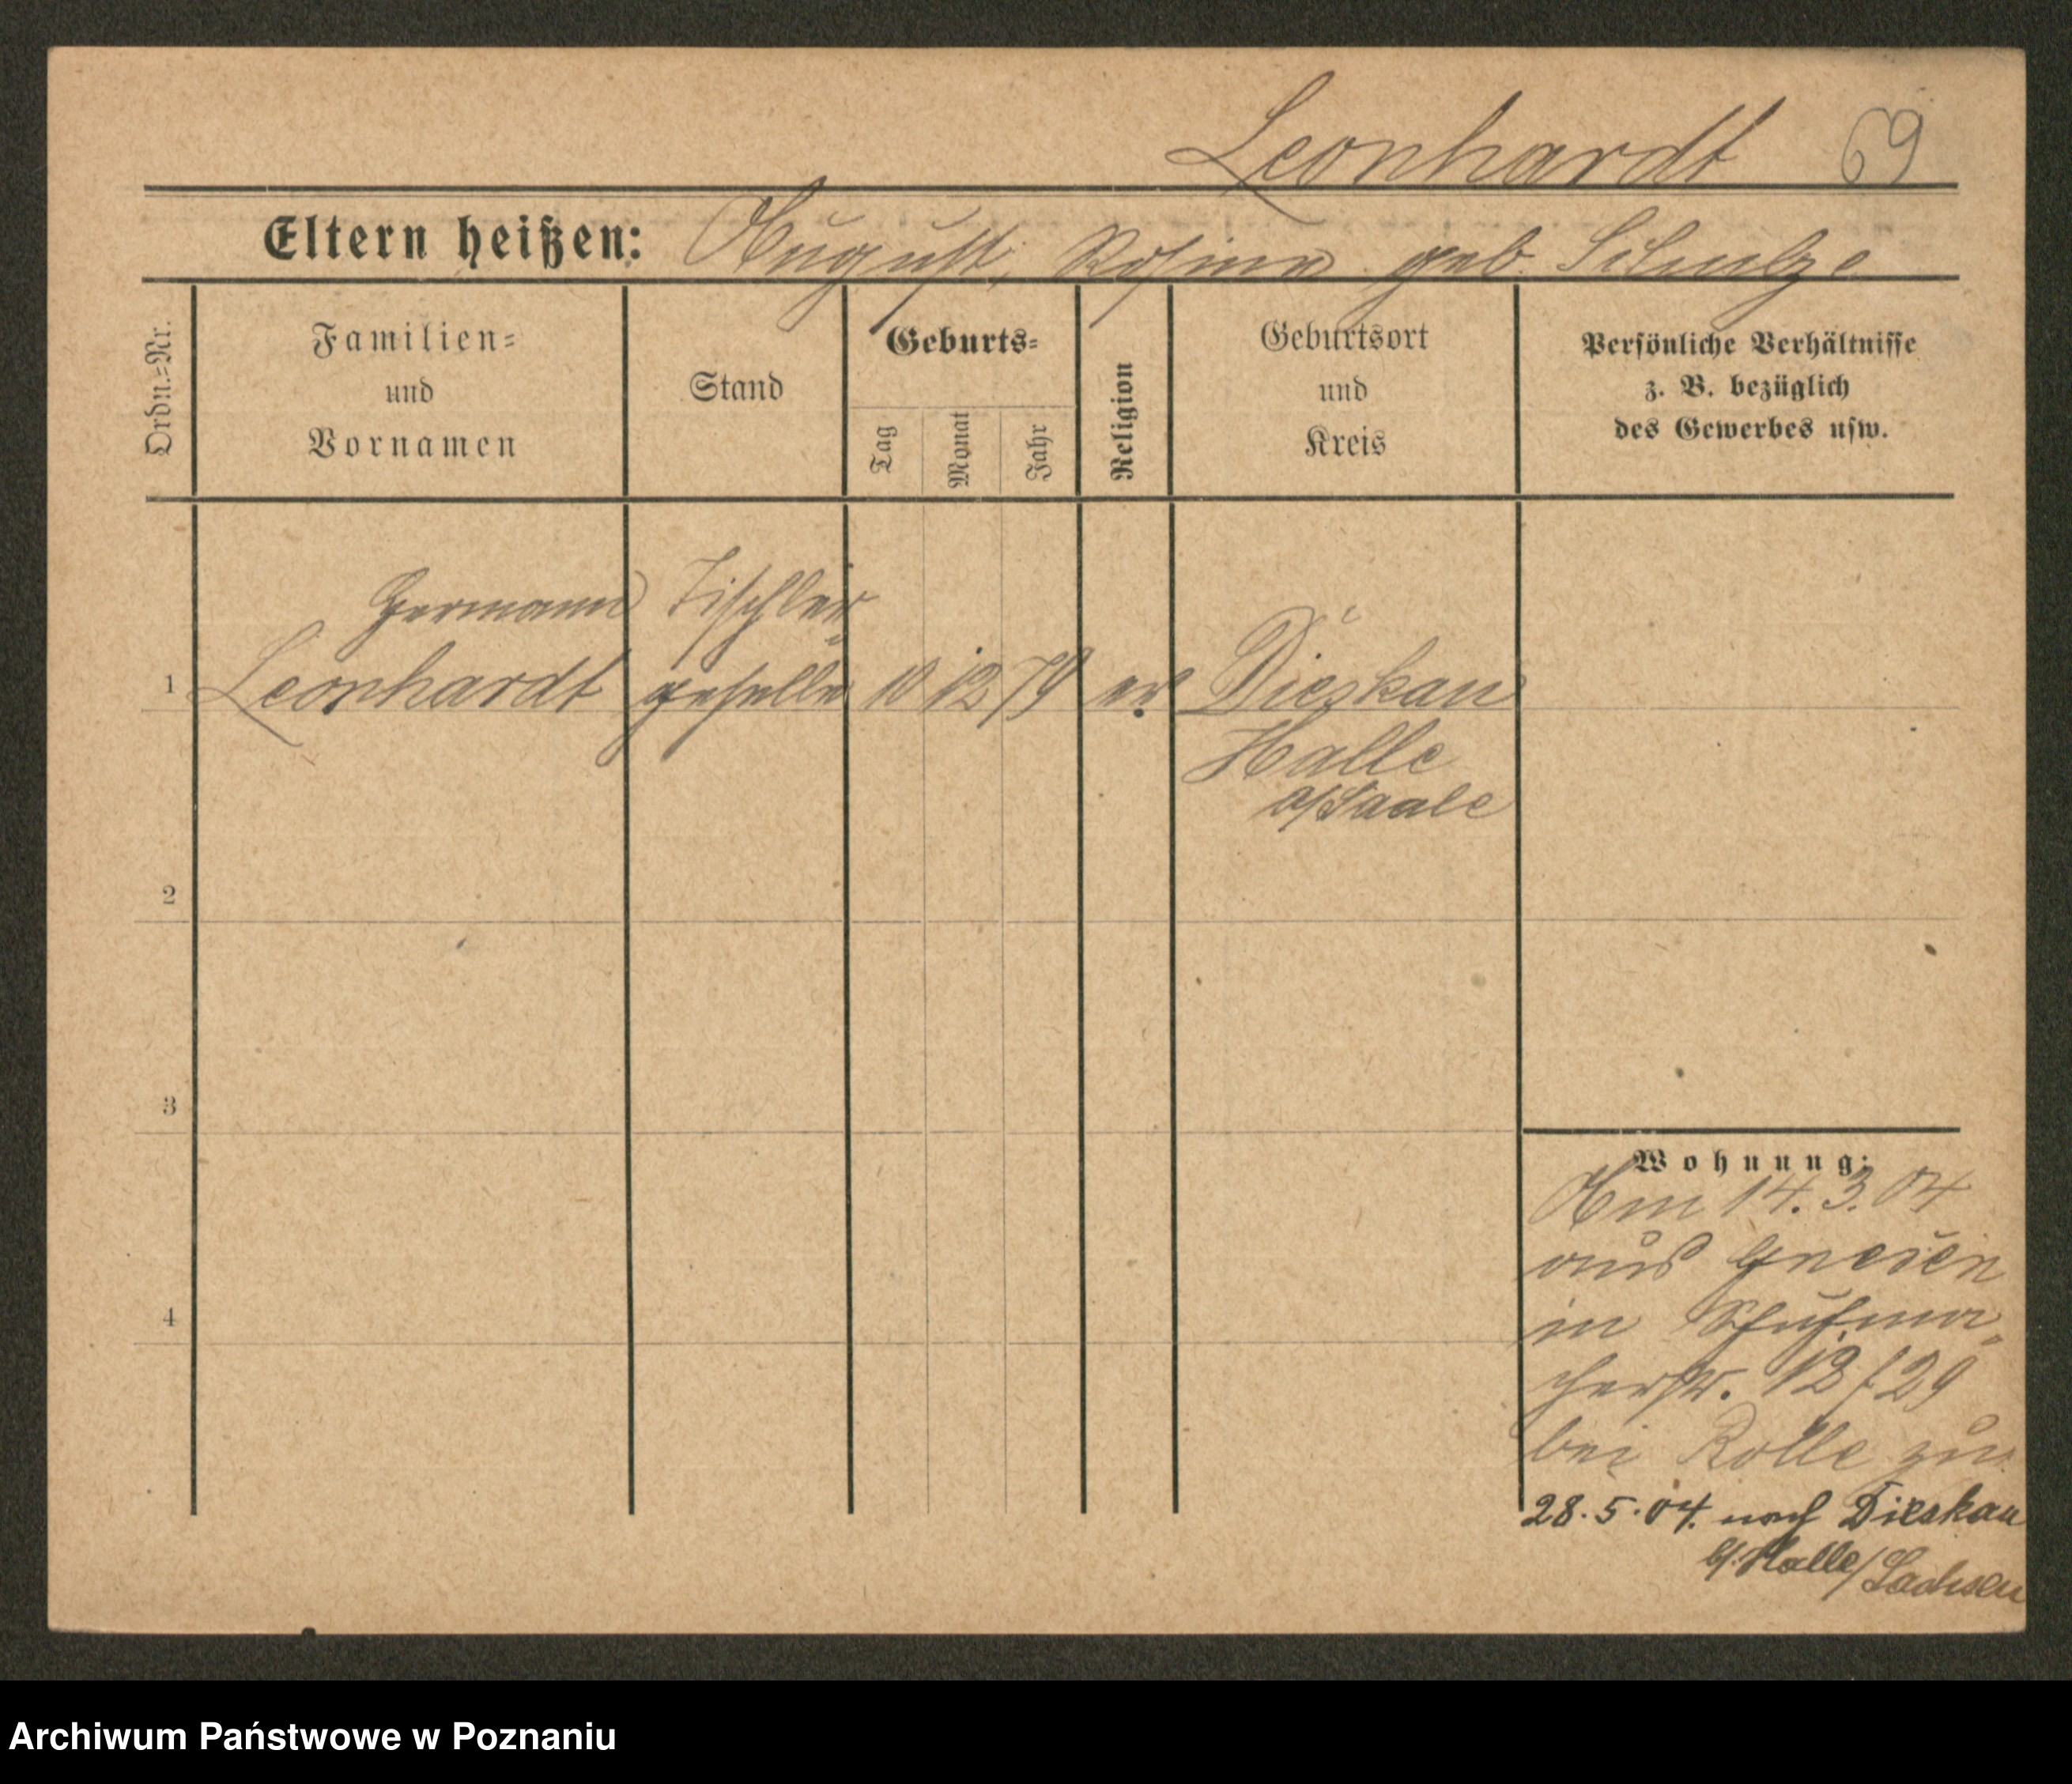 Leonhardt 69
Eltern heißen: August, Rosina geb. Schulze
Ordn.=Nr.
Familien=
und
Vornamen
Stand
Geburts=
Tag
Monat
Jahr
Religion
Geburtsort
und
Kreis
Persönliche Verhältnisse
z. B. bezüglich
des Gewerbes usw.
Hermann Tischler=
1 Leonhardt geselle 10 12 79 ev. Dieskau
Halle
a/Saale
2
3
4
Wohnung:
Am 14.3.04
aus Gnesen
in Schuhma=
cherstr. 12/29
bei Rolle zu.
28.5.04. nach Dieskau
b/Halle/Sachsen
Archiwum Państwowe w Poznaniu